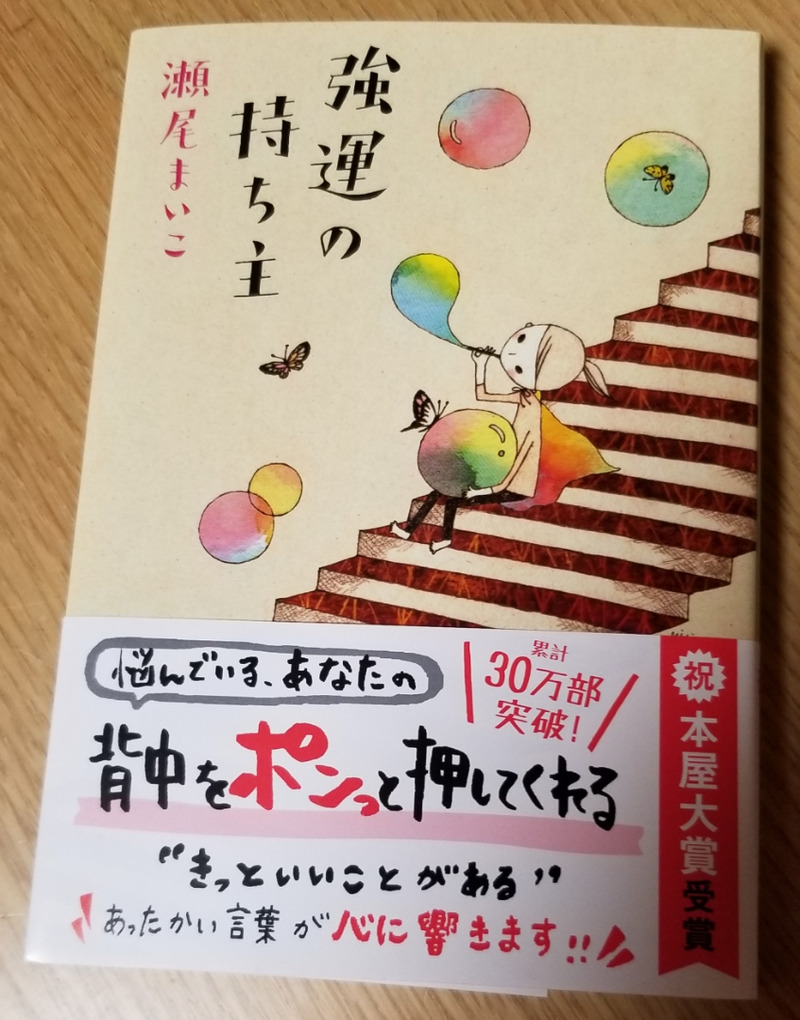 強運の
持ち主
瀬尾まいこ
悩んでいる、あなたの
背中をポンっと押してくれる
“きっといいことがある”
あったかい言葉が心に響きます!!
累計
30万部
突破!
祝
本屋大賞受賞